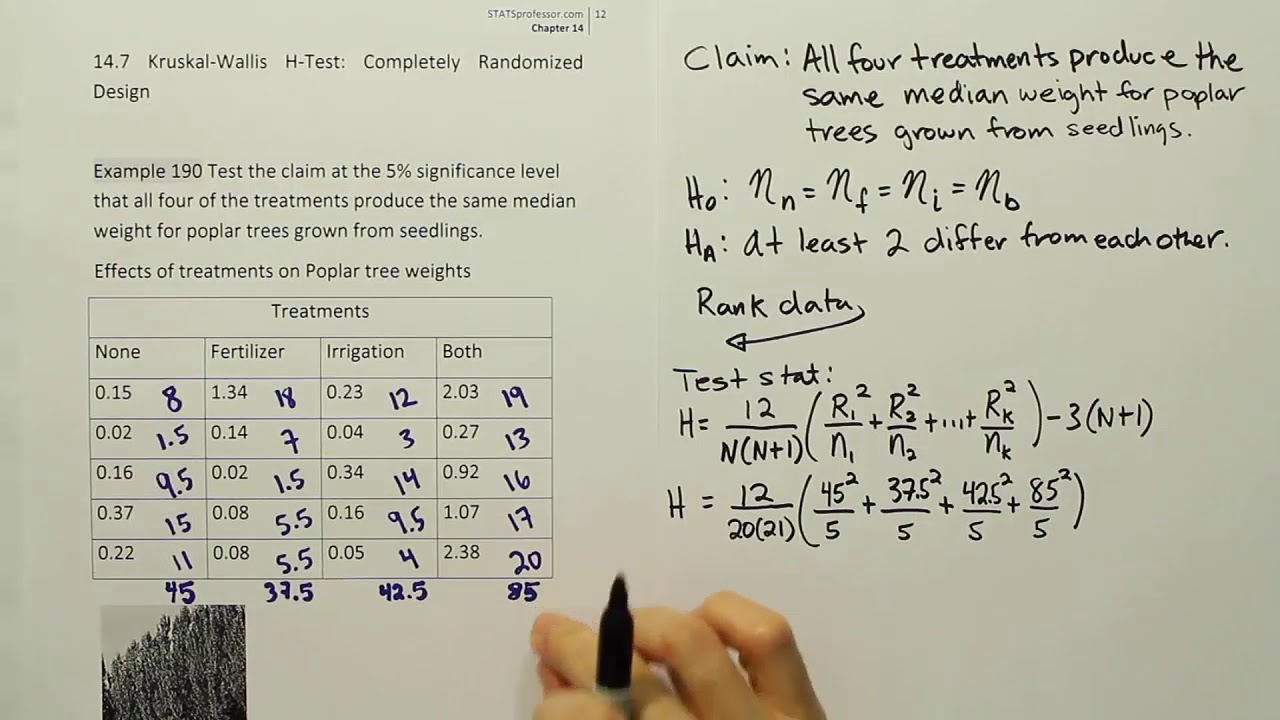 STATSprofessor.com 12
Chapter 14
14.7 Kruskal-Wallis H-Test: Completely Randomized
Design
Example 190 Test the claim at the 5% significance level
that all four of the treatments produce the same median
weight for poplar trees grown from seedlings.
Effects of treatments on Poplar tree weights
Treatments
None Fertilizer Irrigation Both
0.15 8 1.34 18 0.23 12 2.03 19
0.02 1.5 0.14 7 0.04 3 0.27 13
0.16 9.5 0.02 1.5 0.34 14 0.92 16
0.37 15 0.08 5.5 0.16 9.5 1.07 17
0.22 11 0.08 5.5 0.05 4 2.38 20
45 37.5 42.5 85
Claim: All four treatments produce the
same median weight for poplar
trees grown from seedlings.
H₀: ηₙ = η_f = ηᵢ = η_b
H_A: at least 2 differ from each other.
Rank data
Test stat:
H = 12/N(N+1) (R₁²/n₁ + R₂²/n₂ + ... + R_k²/n_k) - 3(N+1)
H = 12/20(21) (45²/5 + 37.5²/5 + 42.5²/5 + 85²/5)